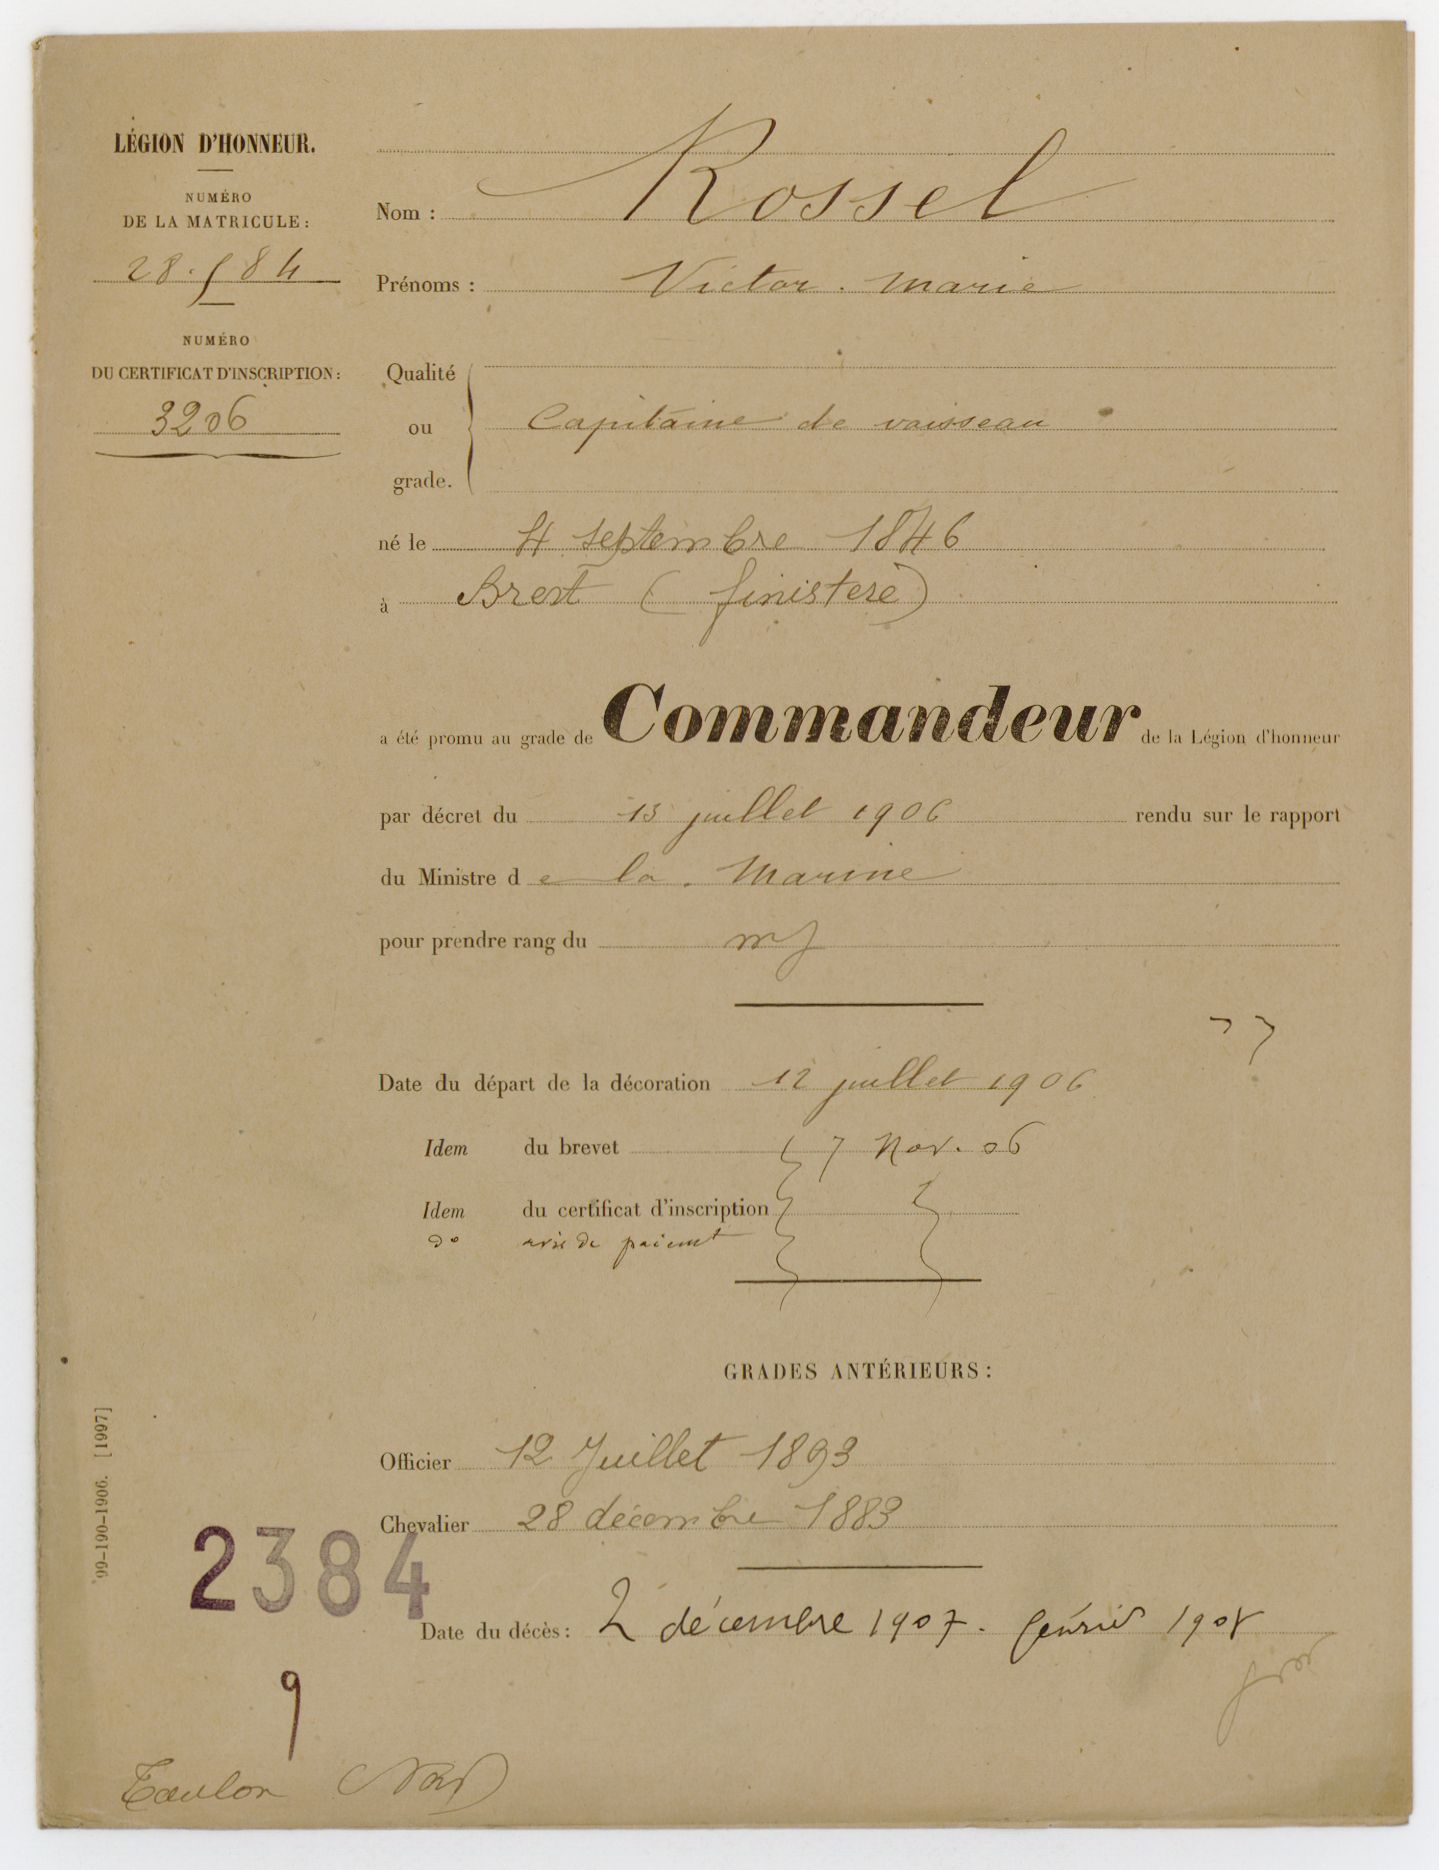 LÉGION D'HONNEUR.
NUMÉRO
DE LA MATRICULE :
28.584
NUMÉRO
DU CERTIFICAT D'INSCRIPTION :
3206
Nom : Rossel
Prénoms : Victor. Marie
Qualité
ou
grade.
Capitaine de vaisseau
né le 4 septembre 1846
à Brest (finistère)
a été promu au grade de Commandeur de la Légion d'honneur
par décret du 13 juillet 1906 rendu sur le rapport
du Ministre de la Marine
pour prendre rang du
Date du départ de la décoration 12 juillet 1906
Idem du brevet 7 Nov. 06
Idem du certificat d'inscription
do avis de paiemt
GRADES ANTÉRIEURS :
Officier 12 Juillet 1893
Chevalier 28 décembre 1883
99-190-1906. [1997]
2384
Date du décès : 2 décembre 1907. février 1908
9
Toulon